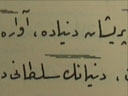 پریشان دنیاده، آواره
، دنیانك سلطانی د